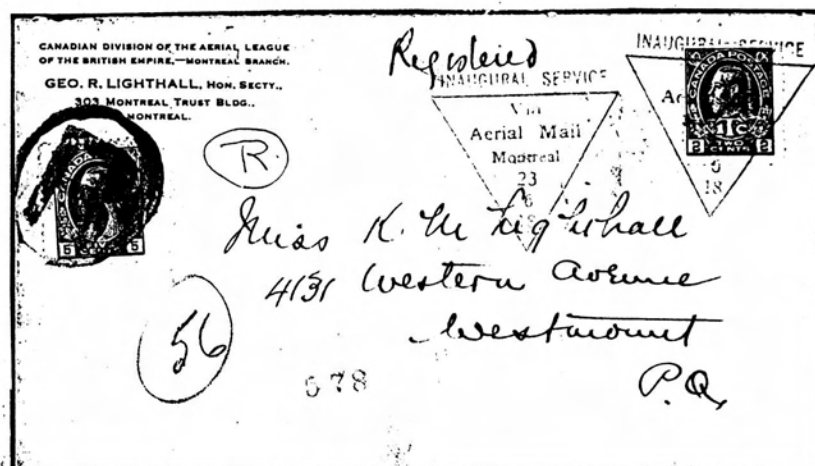 CANADIAN DIVISION OF THE AERIAL LEAGUE
OF THE BRITISH EMPIRE,—MONTREAL BRANCH.
GEO. R. LIGHTHALL, HON. SECTY.,
303 MONTREAL TRUST BLDG.,
MONTREAL.
Registered
INAUGURAL SERVICE
Via
Aerial Mail
Montreal
23
6
18
INAUGURAL SERVICE
6
18
CANADA POSTAGE
1c
2 2
CANADA
5 CENTS 5
R.
Miss K. M Lighthall
4131 Western Avenue
Westmount
P.Q.
56
578